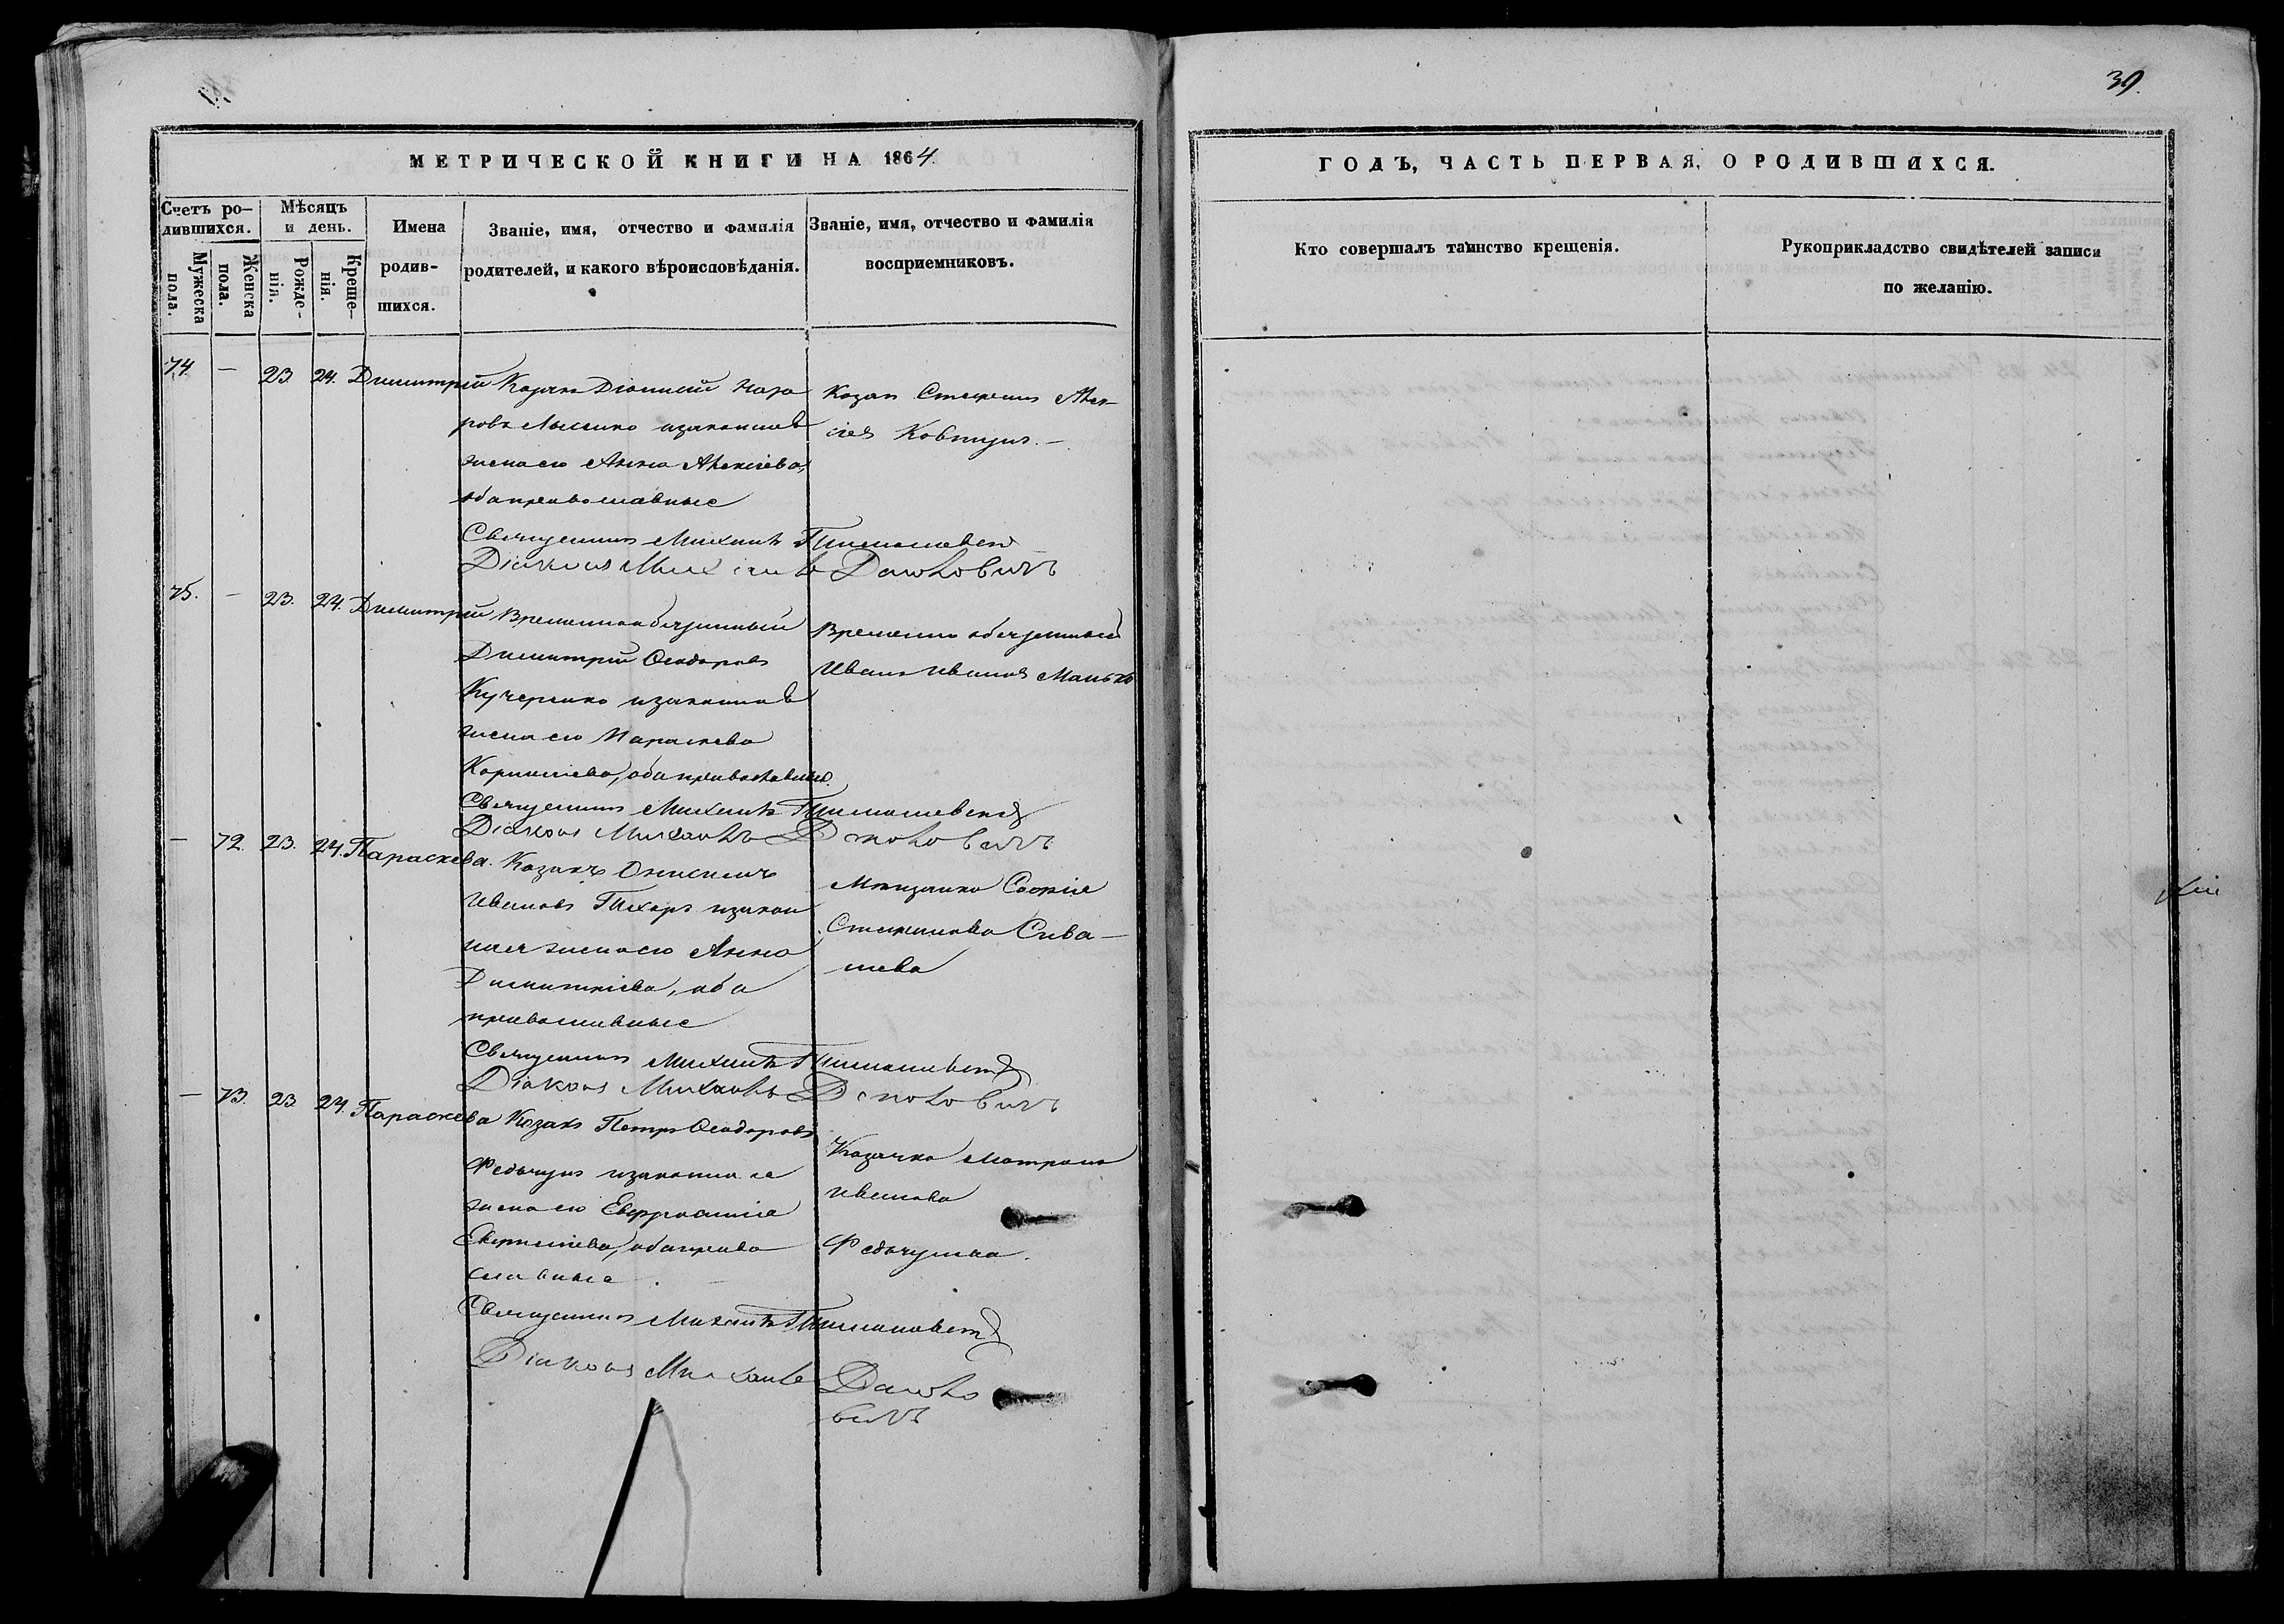 39.
МЕТРИЧЕСКОЙ КНИГИ НА 1864.
ГОДЪ, ЧАСТЬ ПЕРВАЯ, О РОДИВШИХСЯ.
Счетъ ро-
дившихся.
Мужеска
пола.
Женска
пола.
Мѣсяцъ
и день.
Рожде-
нія.
Креще-
нія.
Имена
родив-
шихся.
Званіе, имя, отчество и фамилія
родителей, и какого вѣроисповѣданія.
Званіе, имя, отчество и фамилія
воспріемниковъ.
Кто совершалъ таинство крещенія.
Рукоприкладство свидѣтелей записи
по желанію.
74 — 23. 24. Димитрій Козакъ Діонисій Наза
ровъ Лысенко и законная
жена его Анна Алексіева,
оба православные
Козакъ Стефанъ Алек-
сіевъ Ковтунъ. —
Священникъ Михаилъ Тимошевскій
Діаконъ Михаилъ Даковичъ
75. — 23. 24. Димитрій Временнообязанный
Димитрій Ѳеодоровъ
Кучеренко и законная
жена его Параскева
Корниліева, оба православные.
Временно обязанный
Иванъ Ивановъ Манько
Священникъ Михаилъ Тимошевскій
Діаконъ Михаилъ
— 72. 23. 24. Параскева. Козакъ Онисимъ
Ивановъ Тихоръ и закон
ная жена его Анна
Димитріева, оба
православные
Софія
Стефанова Сива-
шева
Священникъ Михаилъ Тимошевскій
Діаконъ Михаилъ
— 73. 23 24. Параскева Козакъ Петръ Ѳеодоровъ
Федочунъ и законная
жена его Евфросинія
оба право
славные.
Козачка Матрона
Иванова
Священникъ Михаилъ Тимошевскій
Діаконъ Михаилъ